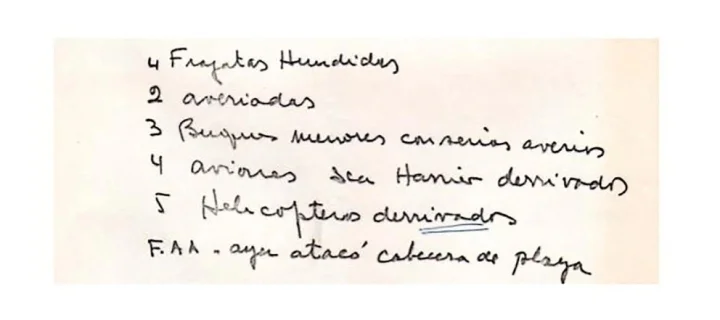 4 Fragatas Hundidas
2 averiadas
3 Buques menores con serias averias
4 aviones Sea Harrier derrivados
5 Helicopteros derrivados
F.AA - ayer atacó cabecera de playa